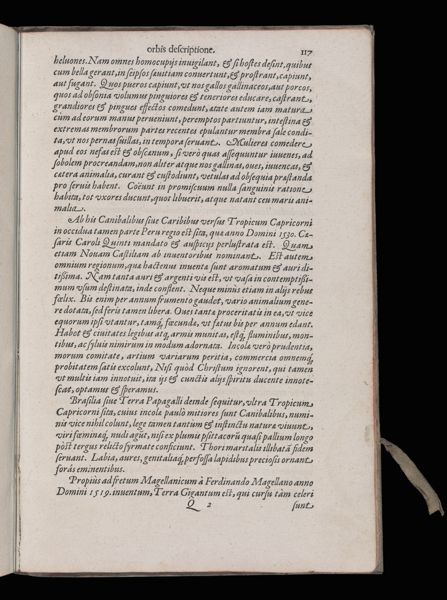 orbis descriptione. 117
heluones. Nam omnes homocupijs inuigilant, & si hostes desint, quibus
cum bella gerant, in seipsos sæuitiam conuertunt, & prostrant, capiunt,
aut fugant. Quos pueros capiunt, vt nos gallos gallinaceos, aut porcos,
quos ad obsonia volumus pinguiores & teneriores educare, castrant,
grandiores & pingues effectos comedunt, ætate autem iam matura
cum ad eorum manus perueniunt, peremptos partiuntur, intestina &
extremas membrorum partes recentes epulantur membra sale condi-
ta, vt nos pernas suillas, in tempora seruant. Mulieres comedere
apud eos nefas est & obscœnum, si verò quas assequuntur iuuenes, ad
sobolem procreandam, non aliter atque nos gallinas, oues, iuuencas, &
cætera animalia, curant & custodiunt, vetulas ad obsequia præstanda
pro seruis habent. Coëunt in promiscuum nulla sanguinis ratione
habita, tot vxores ducunt, quot libuerit, atque natant ceu maris ani-
malia.
Ab his Canibalibus siue Caribibus versus Tropicum Capricorni
in occidua tamen parte Peru regio est sita, quæ anno Domini 1530. Cæ-
saris Caroli Quinti mandato & auspicijs perlustrata est. Quam
etiam Nouam Castiliam ab inuentoribus nominant. Est autem
omnium regionum, quæ hactenus inuenta sunt aromatum & auri di-
tissima. Nam tanta auri & argenti vis est, vt vasa in contemptissi-
mum vsum destinata, inde constent. Neque minùs etiam in alijs rebus
fœlix. Bis enim per annum frumento gaudet, vario animalium gene-
re dotata, sed feris tamen libera. Oues tanta proceritatis in ea, vt vice
equorum ipsi vtantur, tamq́; fœcunda, vt fœtus bis per annum edant.
Habet & ciuitates legibus atq; armis munitas, estq́; fluminibus, mon-
tibus, ac syluis nimirum in modum adornata. Incolæ verò prudentia,
morum comitate, artium variarum peritia, commercia omnemq́;
probitatem satis excolunt, Nisi quòd Christum ignorent, qui tamen
vt multis iam innotuit, ita ijs & cunctis alijs spiritu ducente innote-
scat, optamus & speramus.
Brasilia siue Terra Papagalli deinde sequitur, vltra Tropicum
Capricorni sita, cuius incolæ paulò mitiores sunt Canibalibus, numi-
nis vice nihil colunt, lege tamen tantum & instinctu naturæ viuunt,
viri fœminæq́; nudi agūt, nisi ex plumis psittacorū quasi pallium longo
pòst tergus relicto syrmate conficiunt. Thori maritalis illibatā fidem
seruant. Labia, aures, genitaliaq́; perfossa lapidibus preciosis ornant
foràs eminentibus.
Propius ad fretum Magellanicum à Ferdinando Magellano anno
Domini 1519. inuentum, Terra Gigantum est, qui cursu tàm celeri
Q 2 sunt